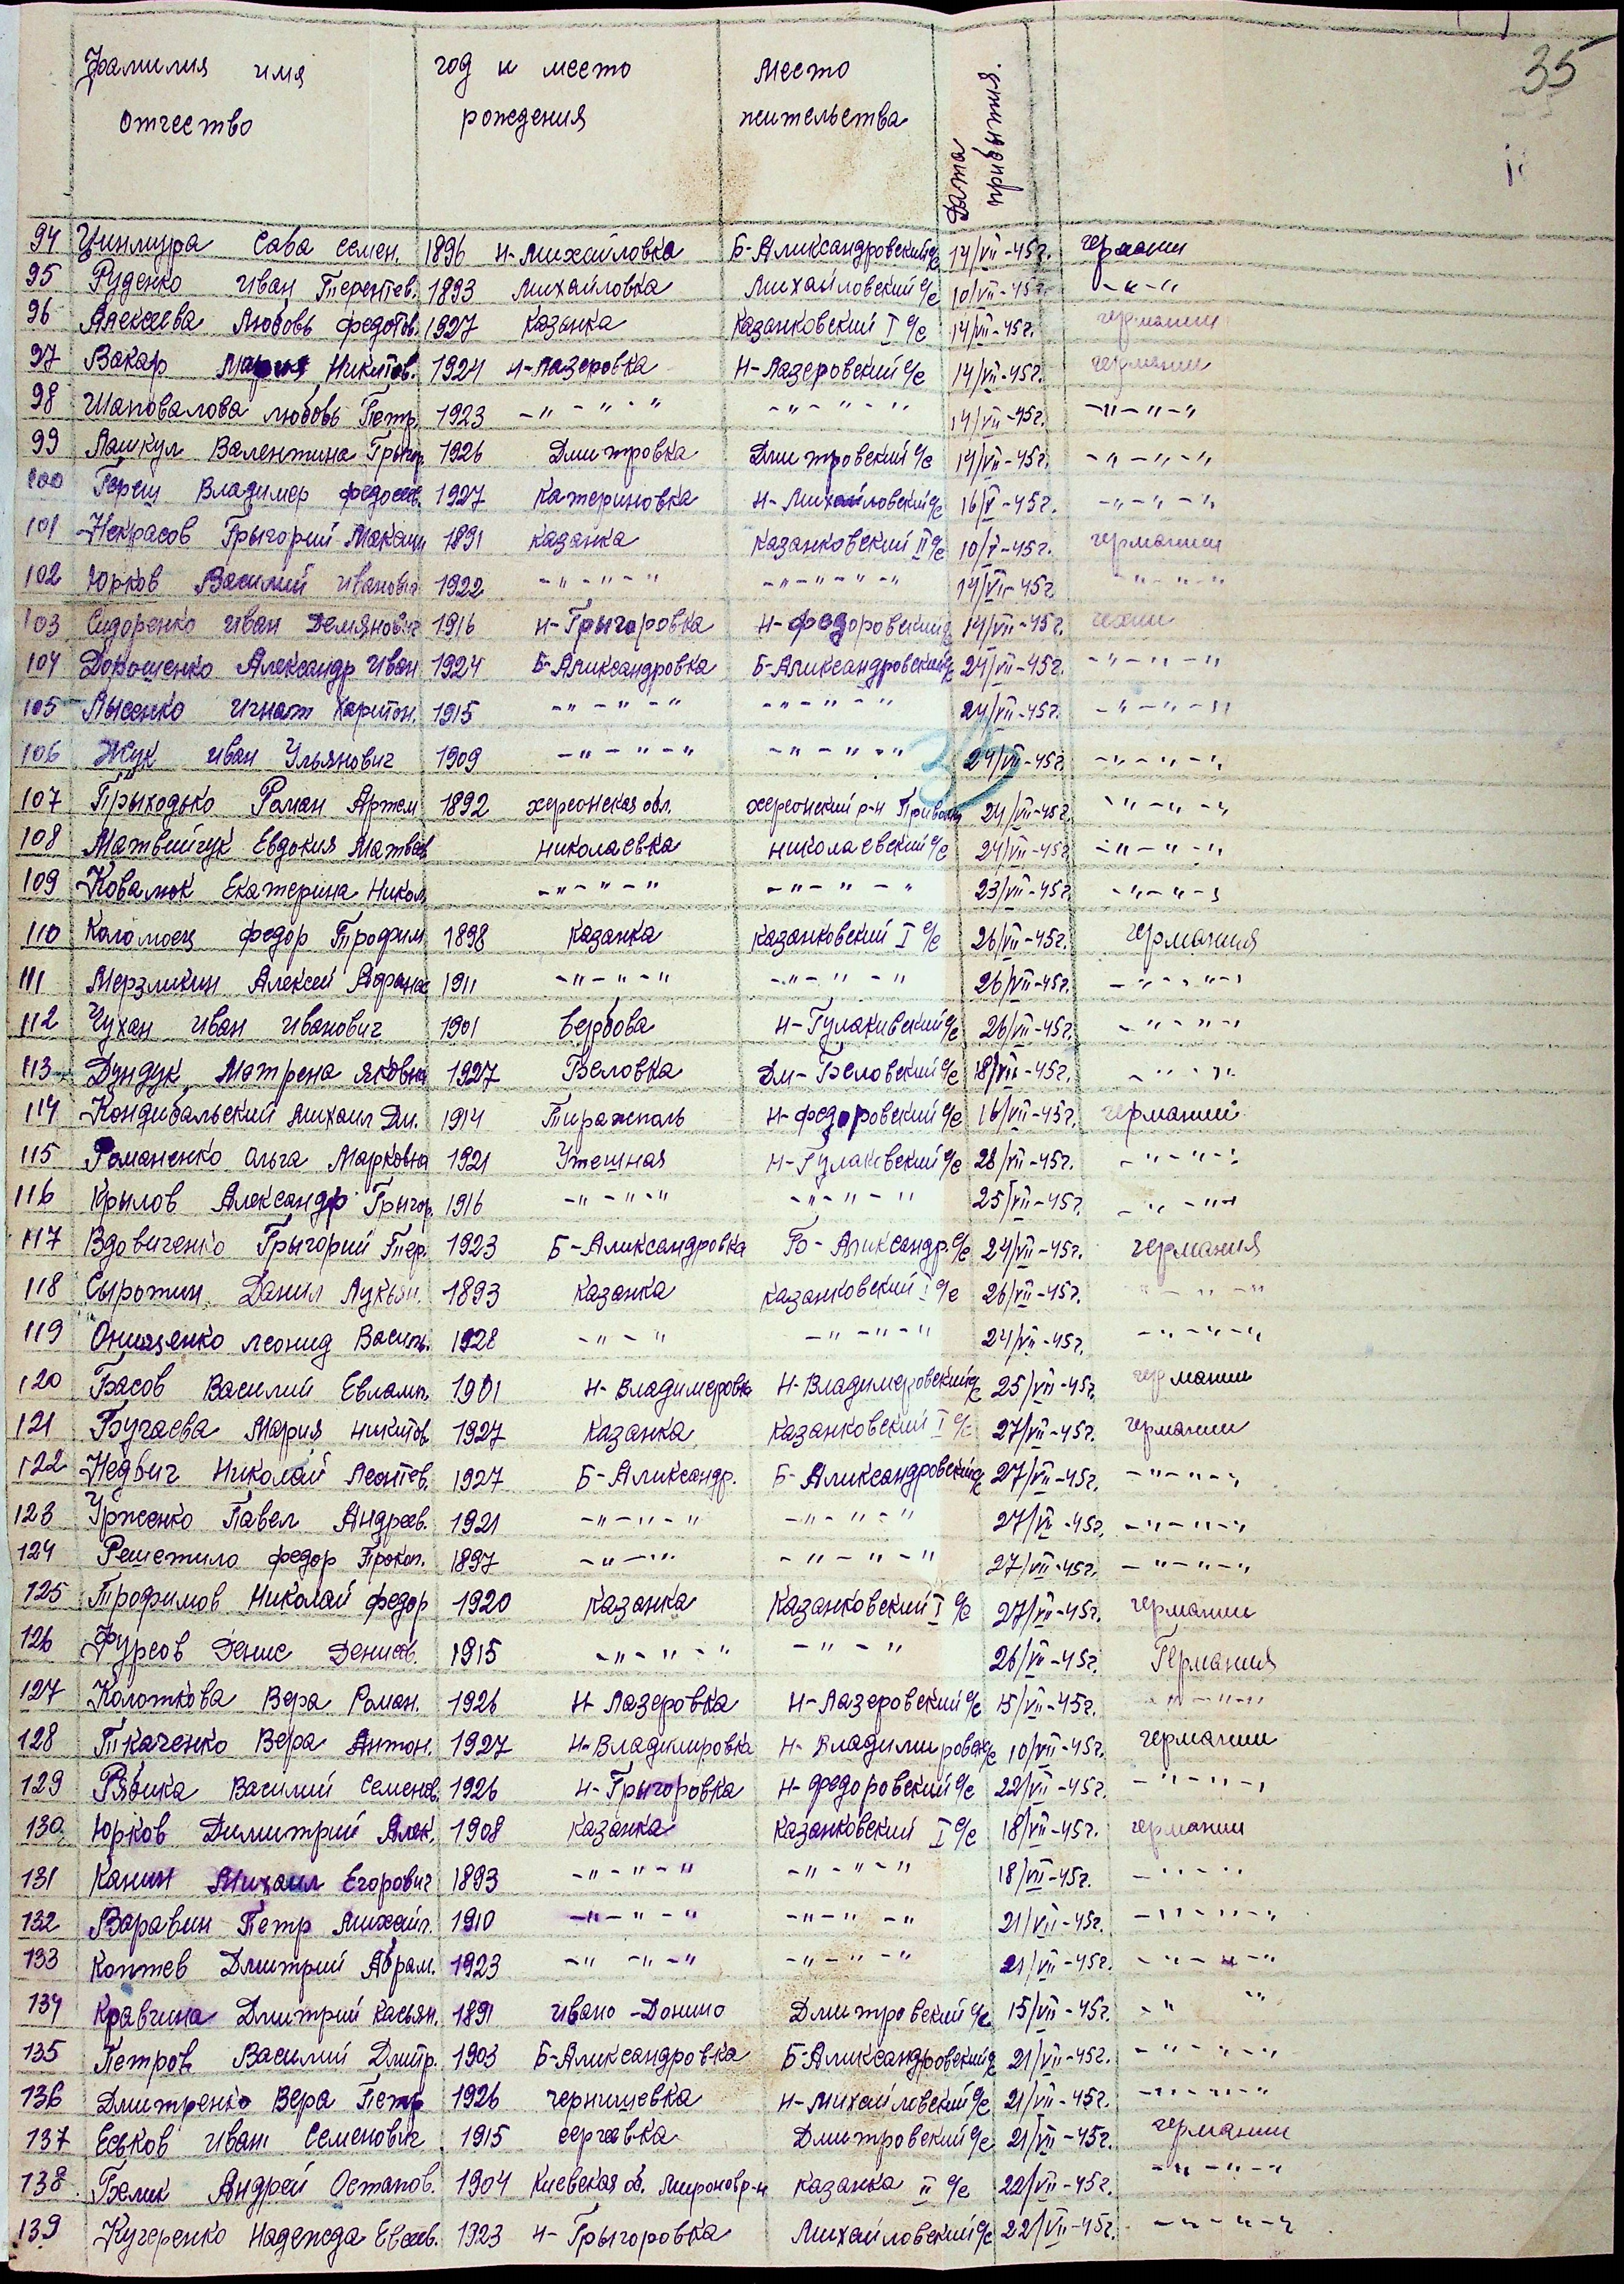 35
Фамилия имя отчество год и место рождения Место жительства Дата прибытия.
94 Цинмура Сава Семен. 1896 Н-Михайловка Б-Александровский с/с 14/VII-45г. германии
95 Руденко Иван Терентев. 1893 Михайловка Михайловский с/с 10/VII-45г. -"-"
96 Алексеева Любовь Федотов. 1927 Казанка Казанковский I с/с 14/VII-45г. германии
97 Вакар Мария Никитов. 1924 Н-Лазеровка Н-Лазеровский с/с 14/VII-45г. германии
98 Шаповалова Любовь Петр. 1923 -"-"-" -"-"-" 14/VII-45г. -"-"-"
99 Лашкул Валентина Грыгор. 1926 Дмитровка Дмитровский с/с 14/VII-45г. -"-"-"
100 Владимер Федосеев. 1927 Катериновка Н-Михайловский с/с 16/V-45г. -"-"-"
101 Некрасов Грыгорий Макаии 1891 Казанка Казанковский II с/с 10/V-45г. германии
102 Юрков Василий Иванович 1922 -"-"-" -"-"-"-" 14/VI-45г -"-"-"
103 Сидоренко Иван Демянович 1916 Н-Грыгоровка Н-Федоровский с/с 14/VII-45г. чехии
104 Дорошенко Александр Иван 1924 Б-Александровка Б-Александровский с/с 24/VII-45г. -"-"-"
105 Лысенко Игнат Харитон. 1915 -"-"-" -"-"-" 24/VII-45г. -"-"-"
106 Жук Иван Ульянович 1909 -"-"-" -"-"-" 24/VII-45г. -"-"-"
107 Прыходько Роман Артем 1892 херсонская обл. херсонский р-н 24/VII-45г. -"-"-"
108 Матвийчук Евдокия Матвеев Николаевка Николаевский с/с 24/VII-45г. -"-"-"
109 Ковалюк Екатерина Никол. -"-"-" -"-"-" 23/VII-45г. -"-"-"
110 Коломоец Федор Трофим 1898 Казанка Казанковский I с/с 26/VII-45г. Германия
111 Мерзликин Алексей Афанас 1911 -"-"-" -"-"-" 26/VII-45г. -"-"-"
112 Чухан Иван Иванович 1901 Вербова Н-Гулакивский с/с 26/VII-45г. -"-"-"
113 Дундук Матрена Яковна 1927 Беловка Дм-Беловский с/с 18/VII-45г. -"-"
114 Кондибальский Михаил Дм. 1914 Тирасполь Н-Федоровский с/с 16/VII-45г. германий
115 Романенко Ольга Марковна 1921 Утешная Н-Гулаковский с/с 28/VII-45г. -"-"-"
116 Крылов Александр Грыгор. 1916 -"-"-" -"-"-" 25/VII-45г. -"-"
117 Вдовиченко Грыгорий 1923 Б-Александровка Б-Александр. с/с 24/VII-45г. Германия
118 Сыротин Данил Лукьян. 1893 Казанка Казанковский I с/с 26/VII-45г. "-"-"
119 Онищенко Леонид Василь. 1928 -"-" -"-"-" 24/VII-45г. -"-"-"
120 Басов Василий Евламп. 1901 Н-Владимеровка Н-Владимеровский с/с 25/VII-45г. германии
121 Бугаева Мария Никитов. 1927 Казанка Казанковский I с/с 27/VII-45г. германии
122 Недвиг Николай Леонтев. 1927 Б-Александр. Б-Александровский с/с 27/VII-45г. -"-"-"
123 Урженко Павел Андреев. 1921 -"-"-" -"-"-" 27/VII-45г. -"-"-"
124 Решетило Федор Прокоп. 1897 -"-" -"-"-" 27/VII-45г. -"-"-"
125 Трофимов Николай Федор 1920 Казанка Казанковский I с/с 27/VII-45г. германии
126 Фурсов Денис Денисов. 1915 -"-"-" -"-" 26/VII-45г. Германия
127 Колоткова Вера Роман. 1926 Н-Лазеровка Н-Лазеровский с/с 15/VII-45г. -"-"
128 Ткаченко Вера Антон. 1927 Н-Владимировка Н-Владимировск с/с 10/VII-45г. германии
129 Рябика Василий Семенов. 1926 Н-Грыгоровка Н-Федоровский с/с 22/VII-45г. -"-"-"
130 Юрков Димитрий Алек. 1908 Казанка Казанковский I с/с 18/VII-45г. германии
131 Канин Михаил Егорович 1893 -"-"-" -"-"-" 18/VII-45г. -"-"
132 Варавин Петр Михайл. 1910 -"-"-" -"-"-" 21/VII-45г. -"-"-"
133 Коптев Дмитрий Абрам. 1923 -"-"-" -"-"-" 21/VII-45г. -"-"-"
134 Кравчина Дмитрий Касьян. 1891 Ивано-Донино Дмитровский с/с 15/VII-45г. -" -"
135 Петров Василий Дмитр. 1903 Б-Александровка Б-Александровский с/с 21/VII-45г. -"-"-"
136 Дмитренко Вера Петр 1926 чернишевка Н-Михайловский с/с 21/VII-45г. -"-"-"
137 Еськов Иван Семенович 1915 сергеевка Дмитровский с/с 21/VII-45г. германии
138 Белик Андрей Остапов. 1904 Киевская об. Миронов р-н Казанка II с/с 22/VII-45г. -"-"-"
139 Кучеренко Надежда Евсеев. 1923 Н-Грыгоровка Михайловский с/с 22/VII-45г. -"-"-"